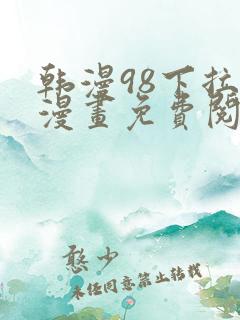 韩漫98下拉
漫畫免費閱
憨少
未经同意禁止转载